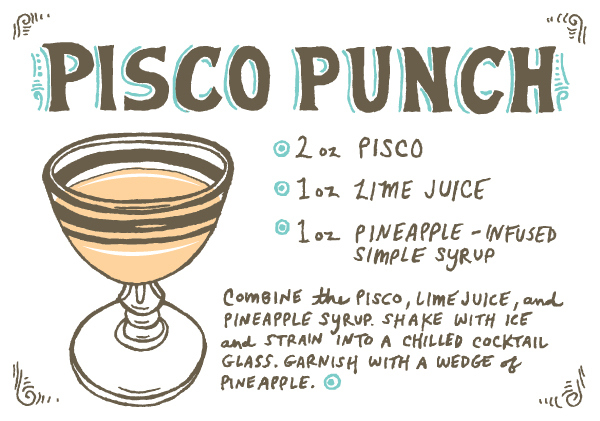 PISCO PUNCH
2 oz PISCO
1 oz LIME JUICE
1 oz PINEAPPLE-INFUSED
SIMPLE SYRUP
COMBINE the PISCO, LIME JUICE, and
PINEAPPLE SYRUP. SHAKE WITH ICE
and STRAIN INTO A CHILLED COCKTAIL
GLASS. GARNISH WITH A WEDGE of
PINEAPPLE.